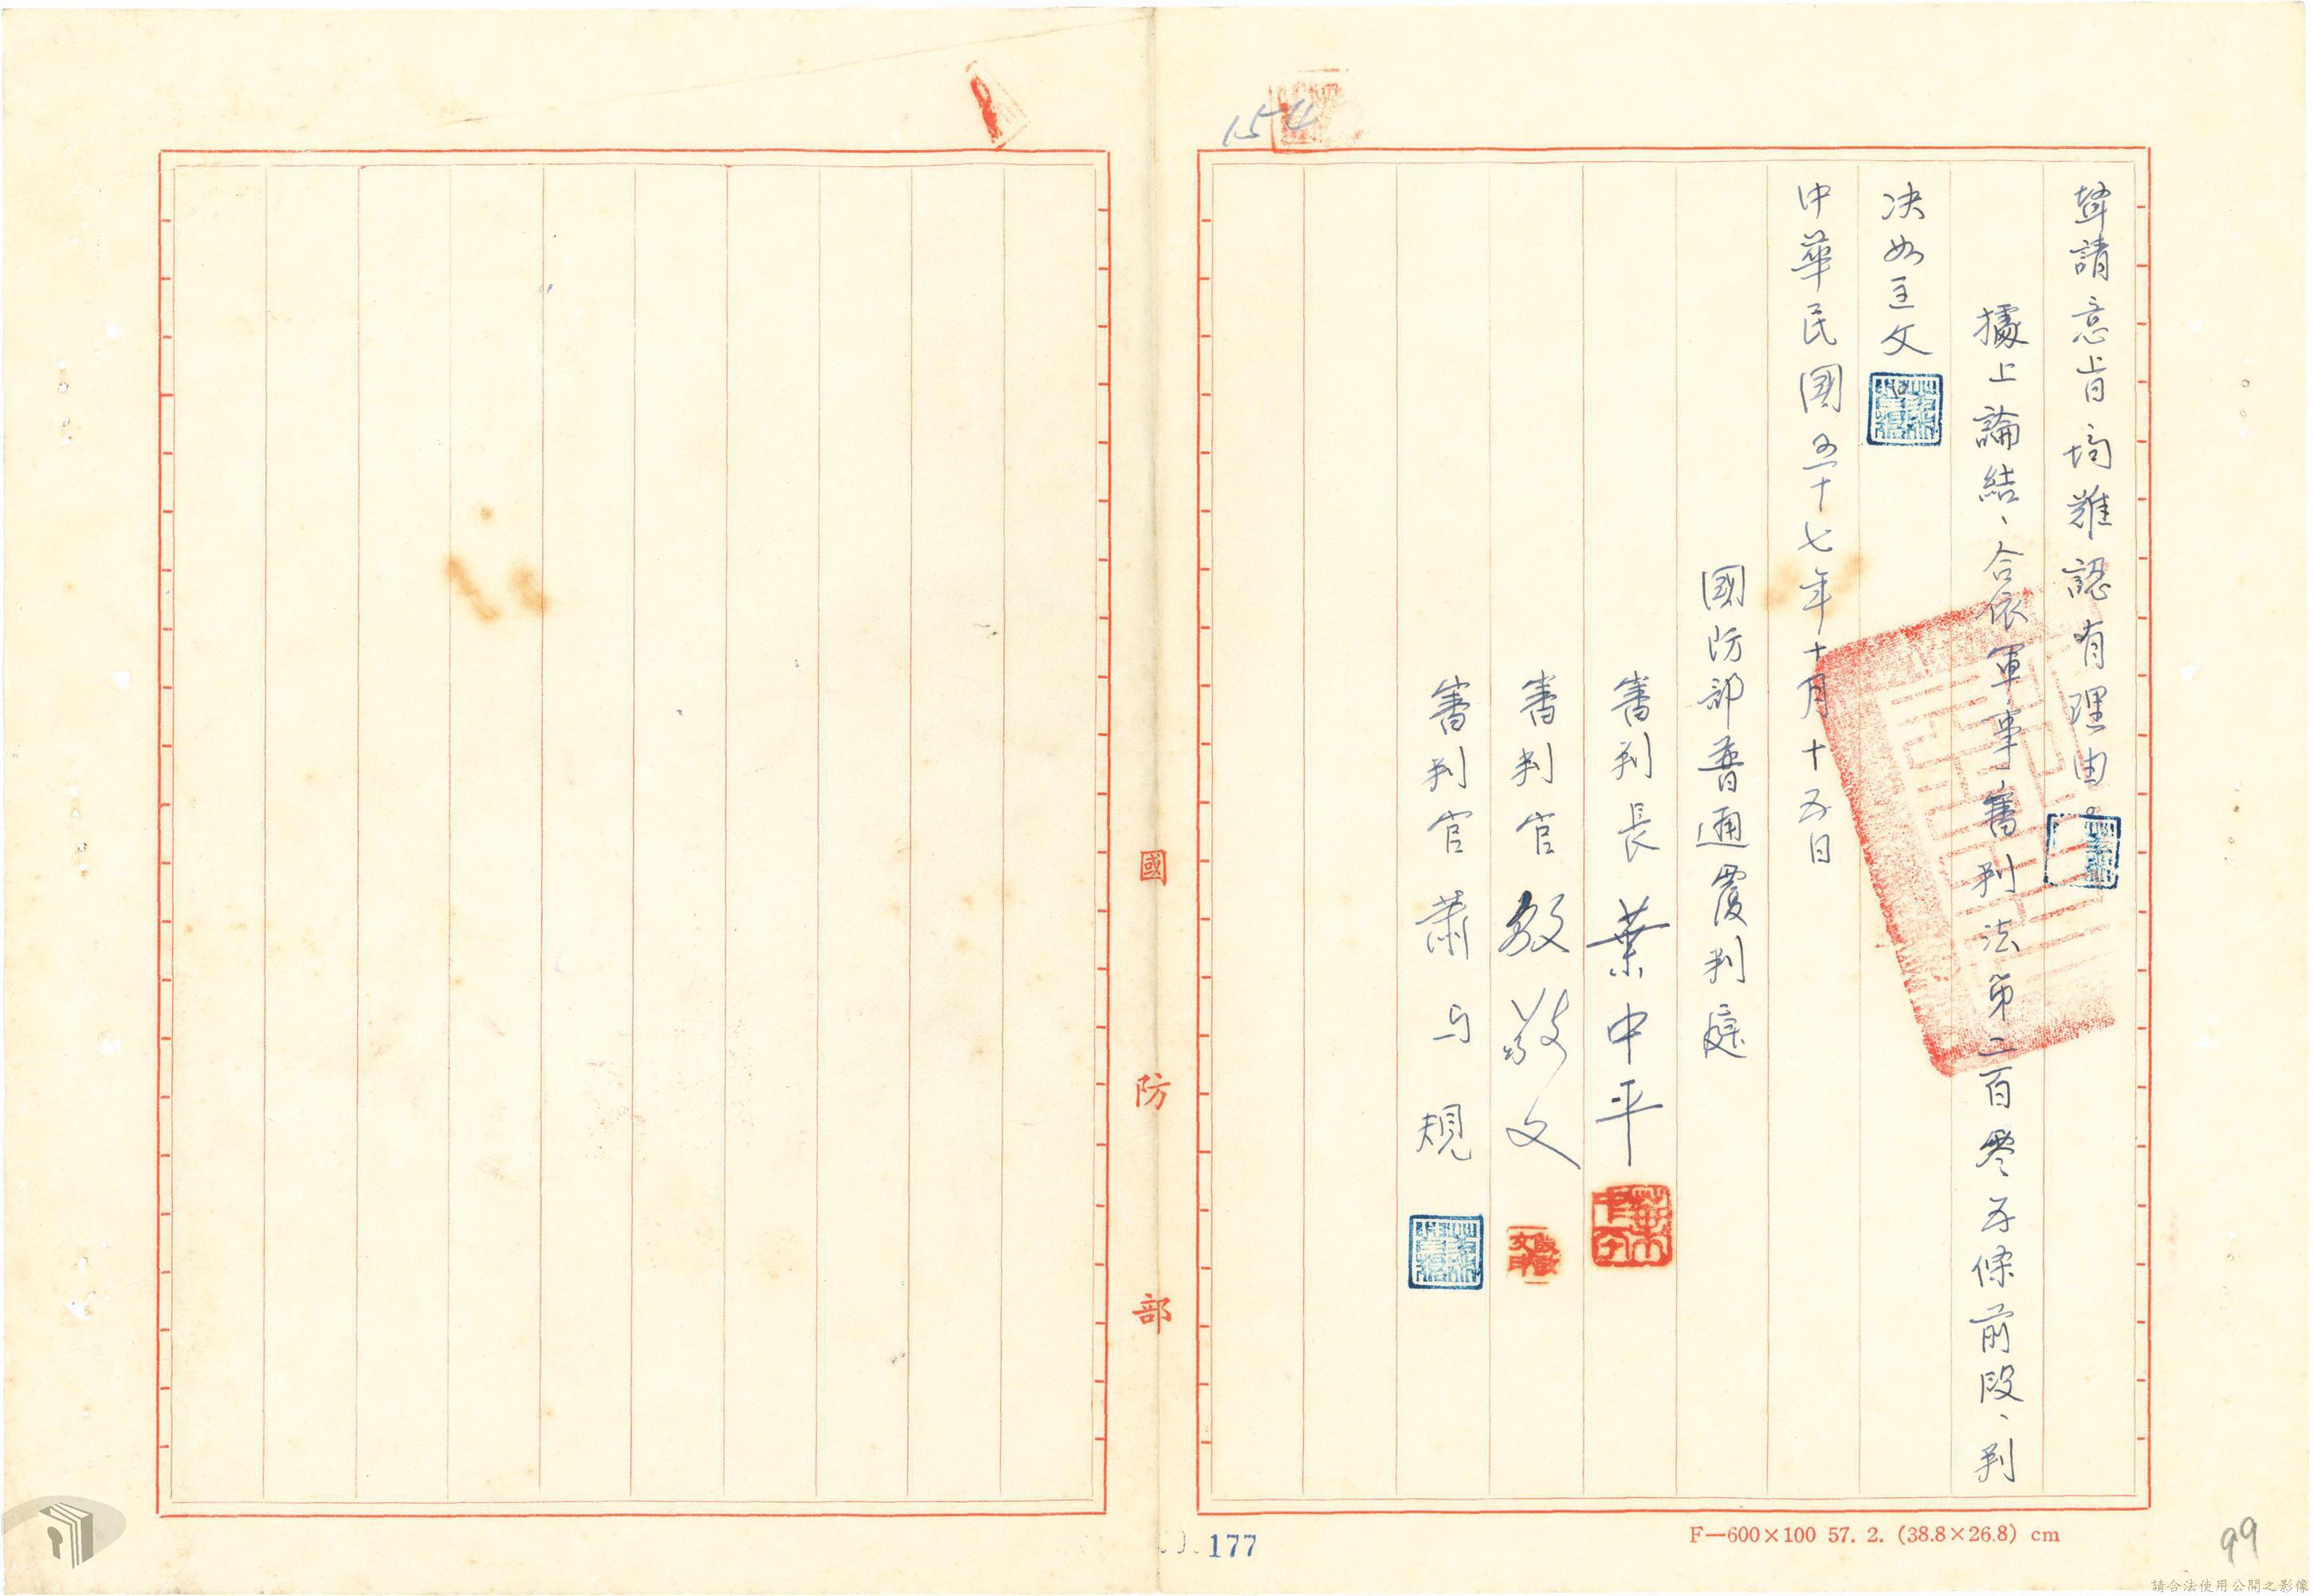 154
聲請意旨均難認有理由。
據上論結、合依軍事審判法第二百零五條前段、判
決如主文
中華民國五十七年十月十五日
國防部普通覆判庭
審判長 葉中平
審判官 殷敬文
審判官 蕭与規
國防部
177
F—600×100 57. 2. (38.8×26.8) cm
99
請合法使用公開之影像